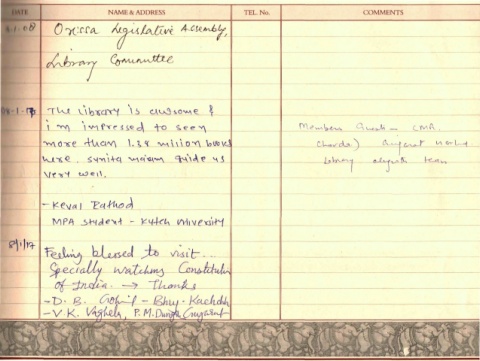 DATE NAME & ADDRESS TEL. No. COMMENTS
Orissa Legislative Assembly,
Library Committee
The library is awsome &
i'm impressed to seen
more than 1.38 million books
here. sunita ma'am guide us
very well.
- Keval Rathod
MPA student - Kutch University
8/1/17
Feeling blessed to visit..
Specially watching Constitution
of India. → Thanks
- D. B. Gohil - Bhuj - Kachchh
- V. K. Vaghela, P. M. Gujarat
Members
Library team